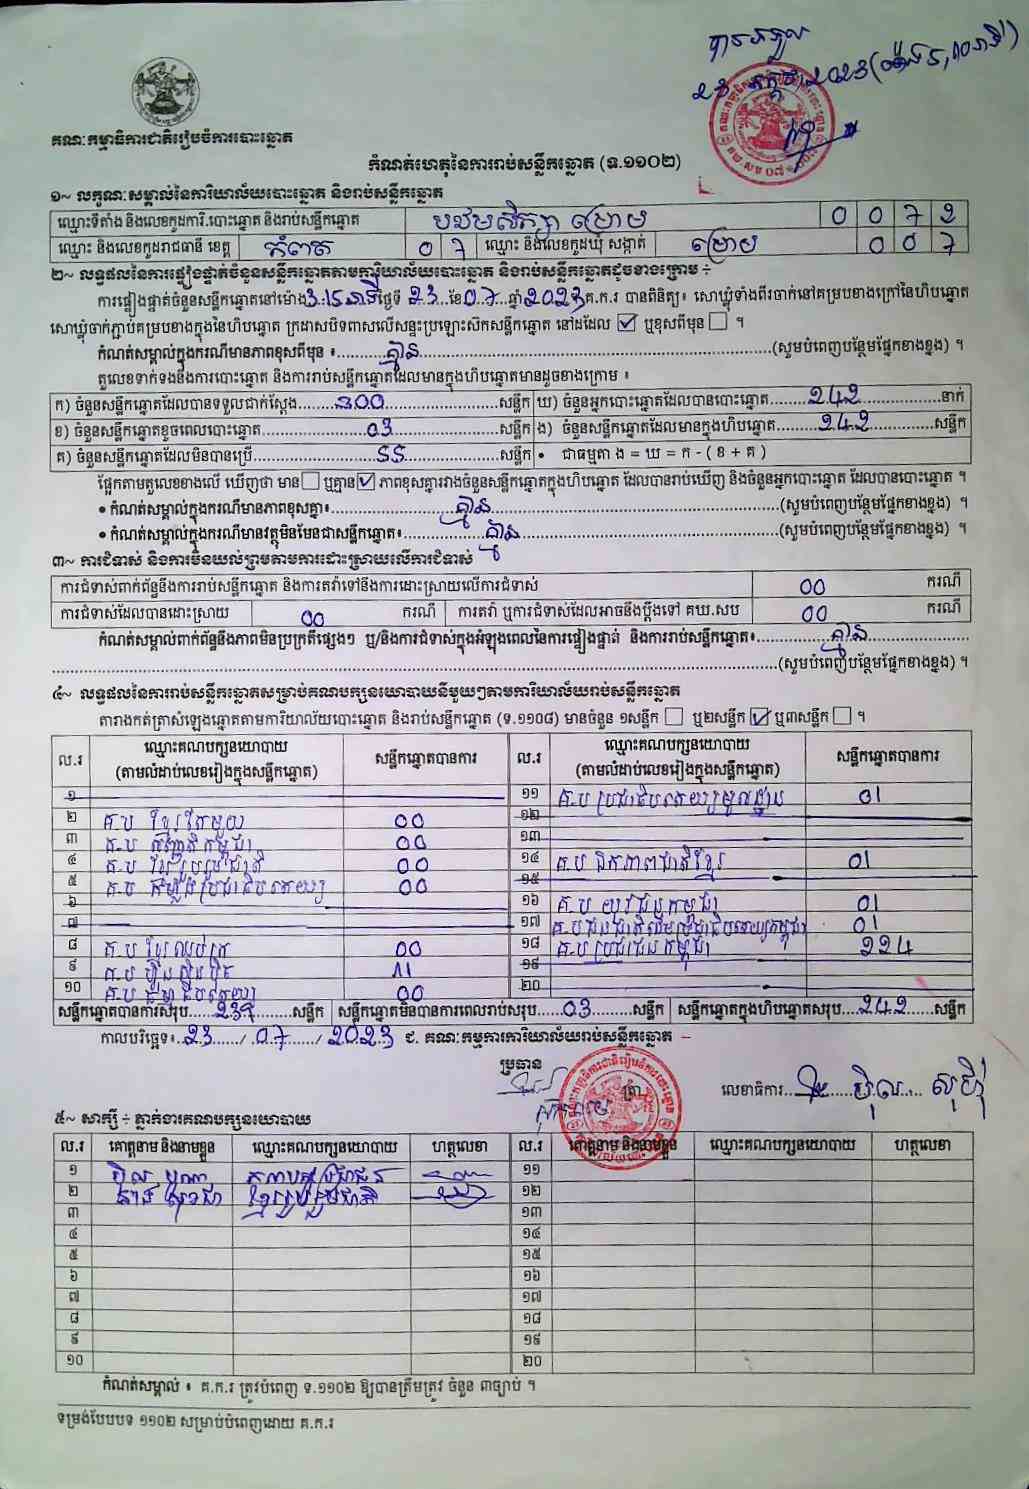 បានទទួល
២៣ កក្កដា ២០២៣
គណៈកម្មាធិការជាតិរៀបចំការបោះឆ្នោត
កំណត់ហេតុនៃការរាប់សន្លឹកឆ្នោត (ទ.១១០២)
១~ លក្ខណៈសម្គាល់នៃការិយាល័យបោះឆ្នោត និងរាប់សន្លឹកឆ្នោត
ឈ្មោះទីតាំង និងលេខកូដការិ.បោះឆ្នោត និងរាប់សន្លឹកឆ្នោត បឋមសិក្សា ព្រោម 0 0 7 2
ឈ្មោះ និងលេខកូដរាជធានី ខេត្ត កំពត 0 7 ឈ្មោះ និងលេខកូដឃុំ សង្កាត់ ព្រោម 0 0 7
២~ លទ្ធផលនៃការផ្ទៀងផ្ទាត់ចំនួនសន្លឹកឆ្នោតតាមការិយាល័យបោះឆ្នោត និងរាប់សន្លឹកឆ្នោតដូចខាងក្រោម ÷
ការផ្ទៀងផ្ទាត់ចំនួនសន្លឹកឆ្នោតនៅម៉ោង 3:15 នាទី ថ្ងៃទី 23 ខែ 07 ឆ្នាំ 2023 គ.ក.រ បានពិនិត្យ៖ សោឃ្លុំទាំងពីរចាក់នៅគម្របខាងក្រៅនៃហិបឆ្នោត
សោឃ្លុំចាក់ភ្ជាប់គម្របខាងក្នុងនៃហិបឆ្នោត ក្រដាសបិទពាសលើសន្ទះប្រឡោះសិកសន្លឹកឆ្នោត នៅដដែល ☑ ឬខុសពីមុន ☐ ។
កំណត់សម្គាល់ក្នុងករណីមានភាពខុសពីមុន ៖ គ្មាន (សូមបំពេញបន្ថែមផ្នែកខាងខ្នង) ។
តួលេខទាក់ទងនឹងការបោះឆ្នោត និងការរាប់សន្លឹកឆ្នោតដែលមានក្នុងហិបឆ្នោតមានដូចខាងក្រោម ៖
ក) ចំនួនសន្លឹកឆ្នោតដែលបានទទួលជាក់ស្តែង 300 សន្លឹក ឃ) ចំនួនអ្នកបោះឆ្នោតដែលបានបោះឆ្នោត 242 នាក់
ខ) ចំនួនសន្លឹកឆ្នោតខូចពេលបោះឆ្នោត 03 សន្លឹក ង) ចំនួនសន្លឹកឆ្នោតដែលមានក្នុងហិបឆ្នោត 242 សន្លឹក
គ) ចំនួនសន្លឹកឆ្នោតដែលមិនបានប្រើ 55 សន្លឹក • ជាធម្មតា ង = ឃ = ក - ( ខ + គ )
ផ្អែកតាមតួលេខខាងលើ ឃើញថា មាន ☐ ឬគ្មាន ☑ ភាពខុសគ្នារវាងចំនួនសន្លឹកឆ្នោតក្នុងហិបឆ្នោត ដែលបានរាប់ឃើញ និងចំនួនអ្នកបោះឆ្នោត ដែលបានបោះឆ្នោត ។
• កំណត់សម្គាល់ក្នុងករណីមានភាពខុសគ្នា៖ គ្មាន (សូមបំពេញបន្ថែមផ្នែកខាងខ្នង) ។
• កំណត់សម្គាល់ក្នុងករណីមានវត្ថុមិនមែនជាសន្លឹកឆ្នោត៖ គ្មាន (សូមបំពេញបន្ថែមផ្នែកខាងខ្នង) ។
៣~ ការជំទាស់ និងការមិនយល់ព្រមតាមការដោះស្រាយលើការជំទាស់
ការជំទាស់ពាក់ព័ន្ធនឹងការរាប់សន្លឹកឆ្នោត និងការតវ៉ាទៅនឹងការដោះស្រាយលើការជំទាស់ 00 ករណី
ការជំទាស់ដែលបានដោះស្រាយ 00 ករណី ការតវ៉ា ឬការជំទាស់ដែលអាចនឹងប្តឹងទៅ គឃ.សប 00 ករណី
កំណត់សម្គាល់ពាក់ព័ន្ធនឹងភាពមិនប្រក្រតីផ្សេងៗ ឬ/និងការជំទាស់ក្នុងអំឡុងពេលនៃការផ្ទៀងផ្ទាត់ និងការរាប់សន្លឹកឆ្នោត៖ គ្មាន
(សូមបំពេញបន្ថែមផ្នែកខាងខ្នង) ។
៤~ លទ្ធផលនៃការរាប់សន្លឹកឆ្នោតសម្រាប់គណបក្សនយោបាយនីមួយៗតាមការិយាល័យរាប់សន្លឹកឆ្នោត
តារាងកត់ត្រាសំឡេងឆ្នោតតាមការិយាល័យបោះឆ្នោត និងរាប់សន្លឹកឆ្នោត (ទ.១១០៨) មានចំនួន ១សន្លឹក ☐ ឬ២សន្លឹក ☑ ឬ៣សន្លឹក ☐ ។
ល.រ ឈ្មោះគណបក្សនយោបាយ (តាមលំដាប់លេខរៀងក្នុងសន្លឹកឆ្នោត) សន្លឹកឆ្នោតបានការ ល.រ ឈ្មោះគណបក្សនយោបាយ (តាមលំដាប់លេខរៀងក្នុងសន្លឹកឆ្នោត) សន្លឹកឆ្នោតបានការ
១ ១១ គ.ប ប្រជាធិបតេយ្យមូលដ្ឋាន 01
២ គ.ប ខ្មែរតែមួយ 00 ១២
៣ គ.ប សញ្ជាតិកម្ពុជា 00 ១៣
៤ គ.ប ខ្មែររួបរួមជាតិ 00 ១៤ គ.ប ឯកភាពជាតិខ្មែរ 01
៥ គ.ប កម្លាំងប្រជាធិបតេយ្យ 00 ១៥
៦ ១៦ គ.ប យុវជនកម្ពុជា 01
៧ ១៧ គ.ប ជនជាតិដើមប្រជាធិបតេយ្យកម្ពុជា 01
៨ គ.ប ខ្មែរឈប់ក្រ 00 ១៨ គ.ប ប្រជាជនកម្ពុជា 224
៩ គ.ប ហ្វ៊ុនស៊ិនប៉ិច 11 ១៩
១០ គ.ប ធម្មាធិបតេយ្យ 00 ២០
សន្លឹកឆ្នោតបានការសរុប 239 សន្លឹក សន្លឹកឆ្នោតមិនបានការពេលរាប់សរុប 03 សន្លឹក សន្លឹកឆ្នោតក្នុងហិបឆ្នោតសរុប 242 សន្លឹក
កាលបរិច្ឆេទ៖ 23 / 07 / 2023 ជ. គណៈកម្មការការិយាល័យរាប់សន្លឹកឆ្នោត
ប្រធាន
ត្រា លេខាធិការ
៥~ សាក្សី ÷ ភ្នាក់ងារគណបក្សនយោបាយ
ល.រ គោត្តនាម និងនាមខ្លួន ឈ្មោះគណបក្សនយោបាយ ហត្ថលេខា ល.រ គោត្តនាម និងនាមខ្លួន ឈ្មោះគណបក្សនយោបាយ ហត្ថលេខា
១ គណបក្សប្រជាជន ១១
២ ខ្មែររួបរួមជាតិ ១២
៣ ១៣
៤ ១៤
៥ ១៥
៦ ១៦
៧ ១៧
៨ ១៨
៩ ១៩
១០ ២០
កំណត់សម្គាល់ ៖ គ.ក.រ ត្រូវបំពេញ ទ.១១០២ ឱ្យបានត្រឹមត្រូវ ចំនួន ៣ច្បាប់ ។
ទម្រង់បែបបទ ១១០២ សម្រាប់បំពេញដោយ គ.ក.រ